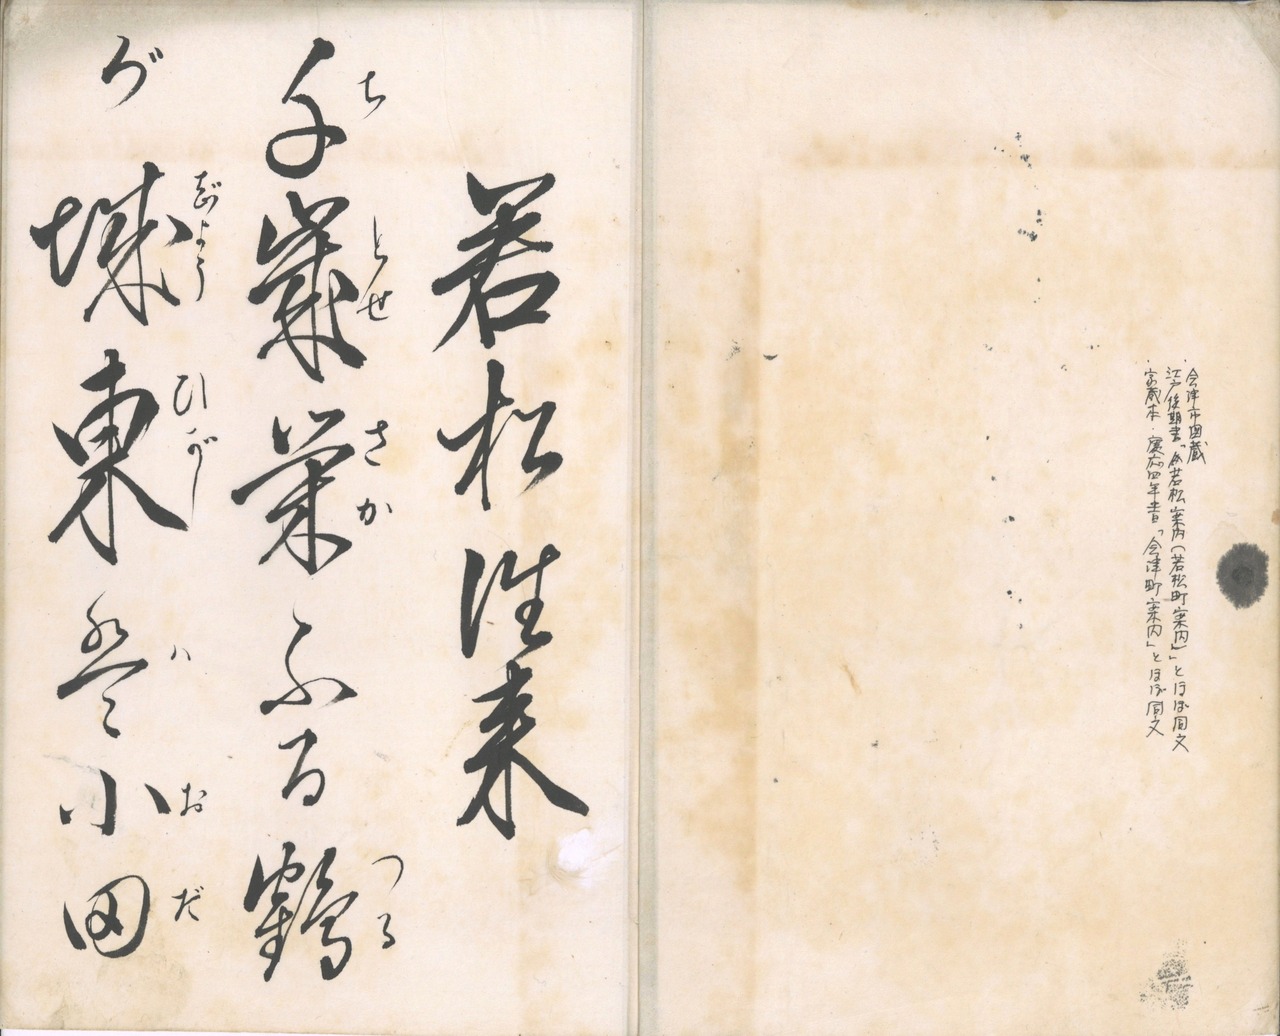 ・会津市図蔵
江戸後期書「会若松案内(若松町案内)」とほぼ同文
・家蔵本・慶応四年書「会津町案内」とほぼ同文
若松往来
ちとせ さか つる
千歳栄ふる鶴
じよう ひがし ハ おだ
が城東盤小田